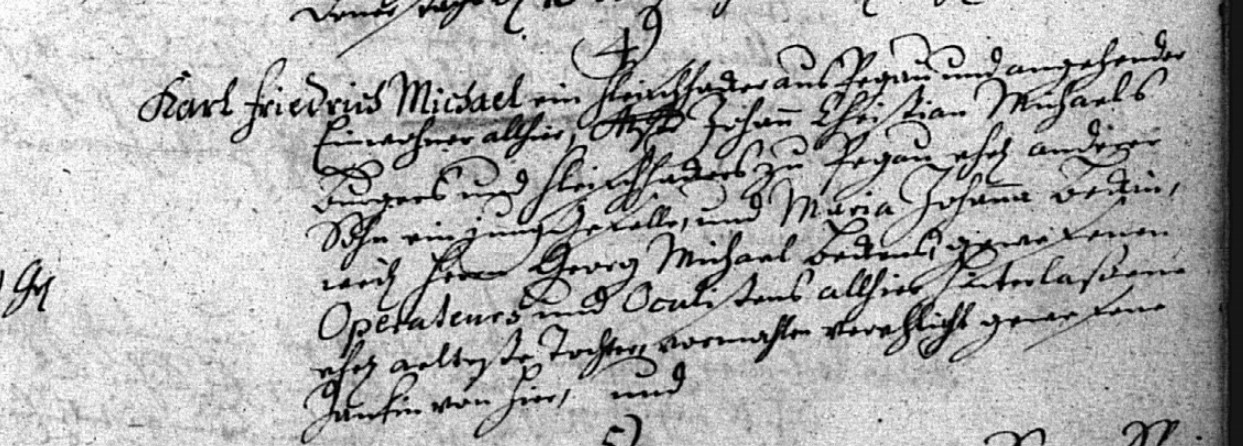 4)
Karl Friedrich Michael ein Fleischhader aus Pegau und angehender
Einwohner allhier, Mstr Johann Christian Michaels
Burgers und Fleischhaders zu Pegau ehel anderer
Sohn ein jung Geselle, und Maria Johanna
weil Herrn Georg Michael gewesenen
Operateurs und Oculistens allhier hinterlaßene
ehel aelteste Tochter, vormahls verehlicht gewesene
von hier, und
5)